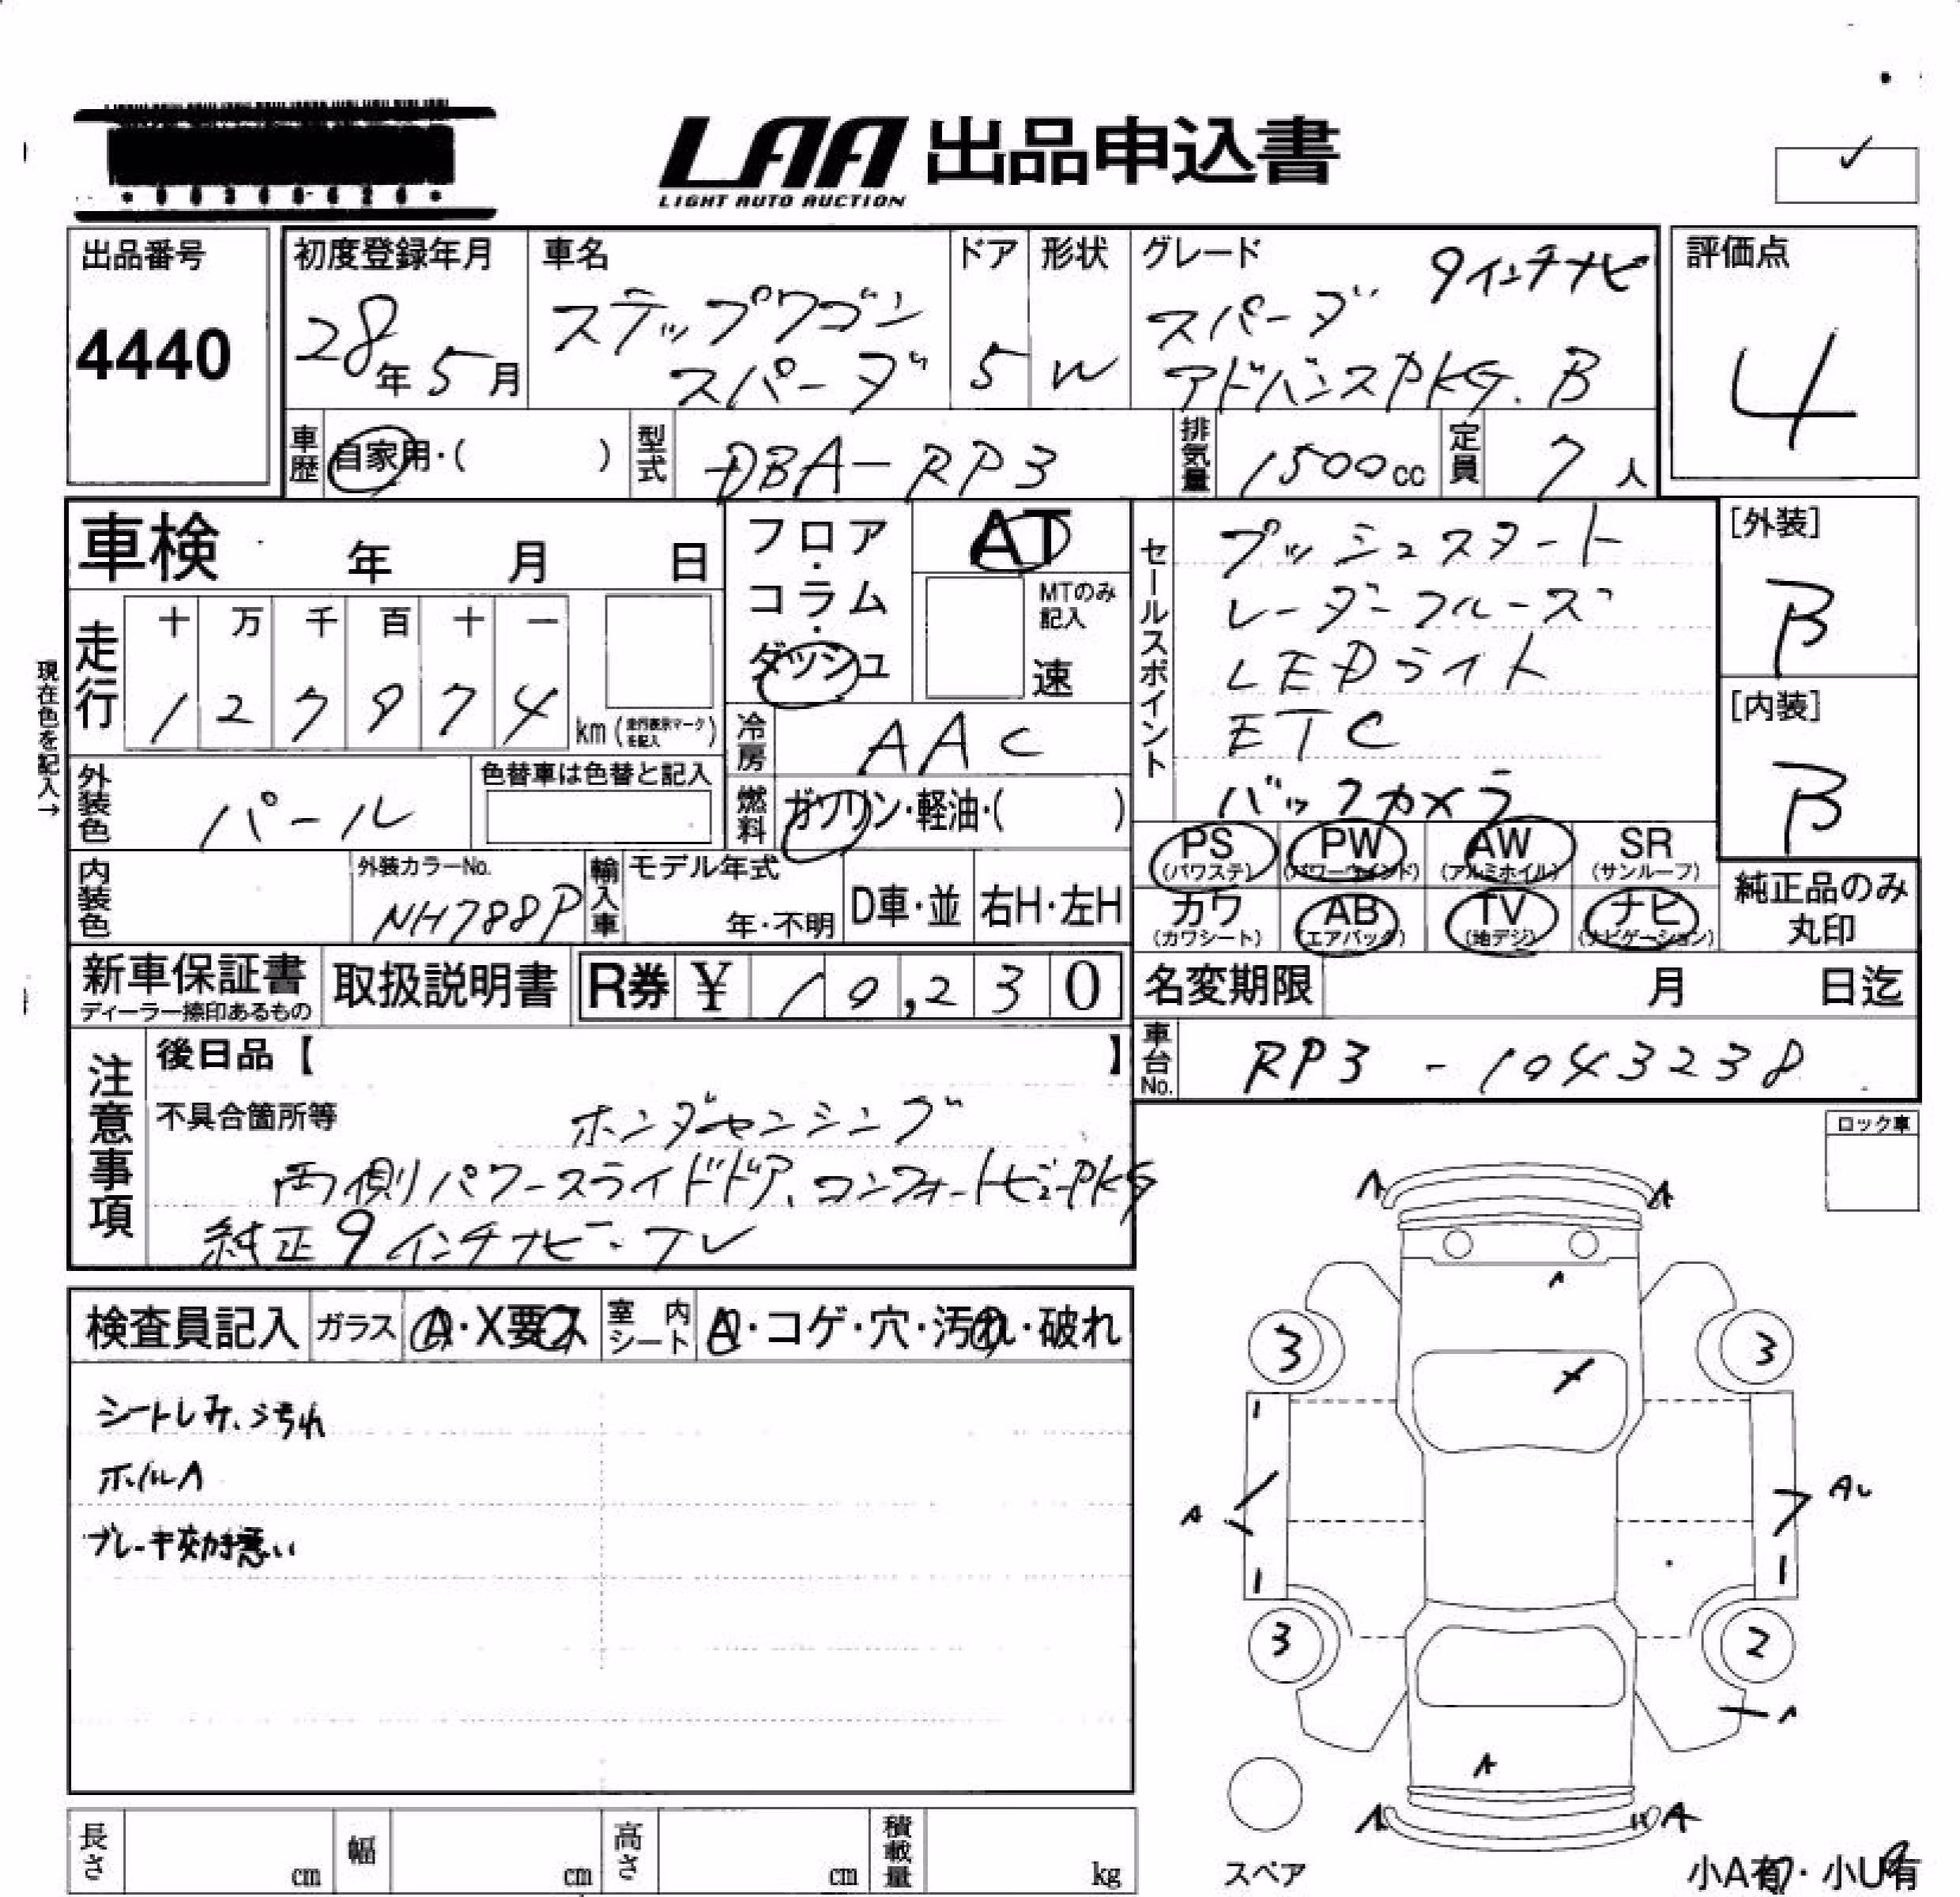 LAA 出品申込書
LIGHT AUTO AUCTION
出品番号
4440
初度登録年月
28年 5月
車名
ステップワゴン
スパーダ
ドア
5
形状
W
グレード
9インチナビ
スパーダ
アドバンスPKG.B
評価点
4
車歴
自家用・( )
型式
DBA-RP3
排気量
1500cc
定員
7人
車検 年 月 日
フロア・コラム・ダッシュ
AT
MTのみ記入
速
セールスポイント
プッシュスタート
レーダークルーズ
LEDライト
ETC
バックカメラ
[外装]
B
[内装]
B
現在色を記入→
走行
十 万 千 百 十 一
1 2 7 9 7 4
km (走行表示マークを記入)
冷房
AAC
外装色
パール
色替車は色替と記入
燃料
ガソリン・軽油・( )
PS (パワステ)
PW (パワーウインド)
AW (アルミホイル)
SR (サンルーフ)
カワ (カワシート)
AB (エアバック)
TV (地デジ)
ナビ (ナビゲーション)
純正品のみ丸印
内装色
外装カラーNo.
NH788P
輸入車
モデル年式
年・不明
D車・並
右H・左H
新車保証書
ディーラー捺印あるもの
取扱説明書
R券 ¥ 10,230
名変期限 月 日迄
車台No.
RP3-1043238
注意事項
後日品【 】
不具合箇所等
ホンダセンシング
両側パワースライドドア、コンフォートビューPKG
純正9インチナビ・TV
ロック車
検査員記入
ガラス
A・X要ス
室内シート
A・コゲ・穴・汚れ・破れ
シートしみ、汚れ
ホイルA
ブレーキ効き悪い
A A
A
3 3
1
A
AU
1 1
3 2
A
A
A A
スペア
小A有・小U有
長さ cm
幅 cm
高さ cm
積載量 kg